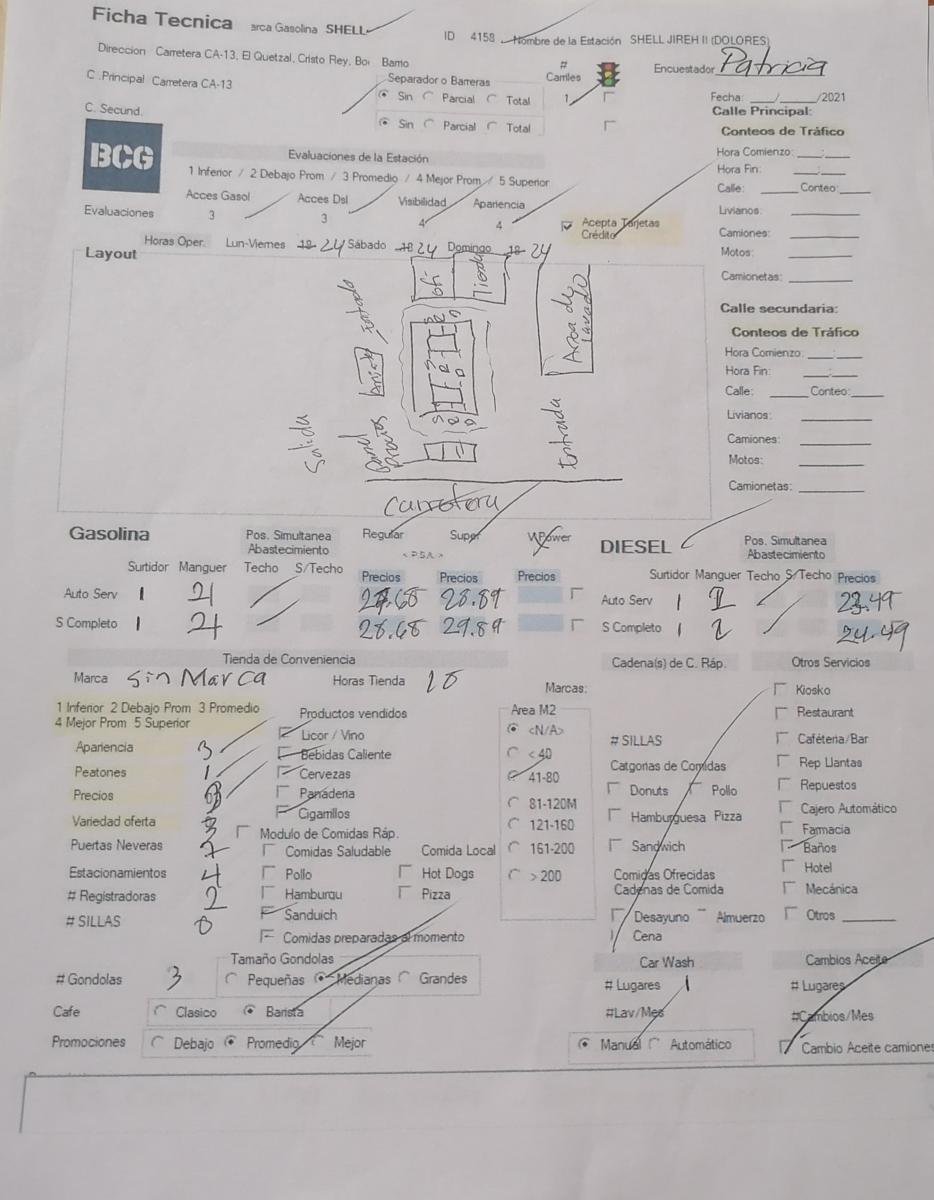 Ficha Tecnica arca Gasolina SHELL ID 4158 Nombre de la Estación SHELL JIREH II (DOLORES)
Direccion Carretera CA-13, El Quetzal, Cristo Rey, Bo Barrio
Encuestador Patricia
C .Principal Carretera CA-13
Separador o Barreras # Carriles
Sin Parcial Total 1
Fecha: ___/___/2021
C. Secund.
Sin Parcial Total
Calle Principal:
BCG
Conteos de Tráfico
Evaluaciones de la Estación
Hora Comienzo: ___:___
1 Inferior / 2 Debajo Prom / 3 Promedio / 4 Mejor Prom / 5 Superior
Hora Fin: ___:___
Acces Gasol Acces Dsl Visibilidad Apariencia
Calle: ___ Conteo: ___
Evaluaciones 3 3 4 4
Acepta Tarjetas Crédito
Livianos: ___
Camiones: ___
Horas Oper. Lun-Viernes 18 24 Sábado 18 24 Domingo 18 24
Motos: ___
Layout
Camionetas: ___
ofi Tienda
Area de Lavado
Salida
Panel Precios
Entrada
Carretera
Calle secundaria:
Conteos de Tráfico
Hora Comienzo: ___:___
Hora Fin: ___:___
Calle: ___ Conteo: ___
Livianos: ___
Camiones: ___
Motos: ___
Camionetas: ___
Gasolina Pos. Simultanea Abastecimiento Regular Super VPower
< P.S.A. >
DIESEL Pos. Simultanea Abastecimiento
Surtidor Manguer Techo S/Techo Precios Precios Precios
Surtidor Manguer Techo S/Techo Precios
Auto Serv 1 28.89
Auto Serv 1 23.49
S Completo 1 28.68 29.89
S Completo 1 24.49
Tienda de Conveniencia Cadena(s) de C. Ráp. Otros Servicios
Marca Sin Marca Horas Tienda Marcas:
Kiosko
1 Inferior 2 Debajo Prom 3 Promedio
4 Mejor Prom 5 Superior
Productos vendidos Area M2
Restaurant
Apariencia 3 Licor / Vino <N/A>
# SILLAS Caféteria/Bar
Peatones 1 Bebidas Caliente < 40
Catgorias de Comidas Rep Llantas
Precios Cervezas 41-80
Donuts Pollo Repuestos
Panaderia 81-120M
Cajero Automático
Variedad oferta 3 Cigarrillos 121-160
Hamburguesa Pizza Farmacia
Modulo de Comidas Ráp.
Puertas Neveras 7 Comidas Saludable Comida Local 161-200
Sandwich Baños
Estacionamientos 4 Pollo Hot Dogs > 200
Comidas Ofrecidas Cadenas de Comida Hotel
# Registradoras 2 Hamburgu Pizza
Mecánica
# SILLAS 0 Sanduich
Desayuno Almuerzo Otros ___
Comidas preparadas al momento
Cena
Tamaño Gondolas
Car Wash Cambios Aceite
# Gondolas 3 Pequeñas Medianas Grandes
# Lugares 1 # Lugares
Cafe Clasico Barista
#Lav/Mes #Cambios/Mes
Promociones Debajo Promedio Mejor
Manual Automático Cambio Aceite camione